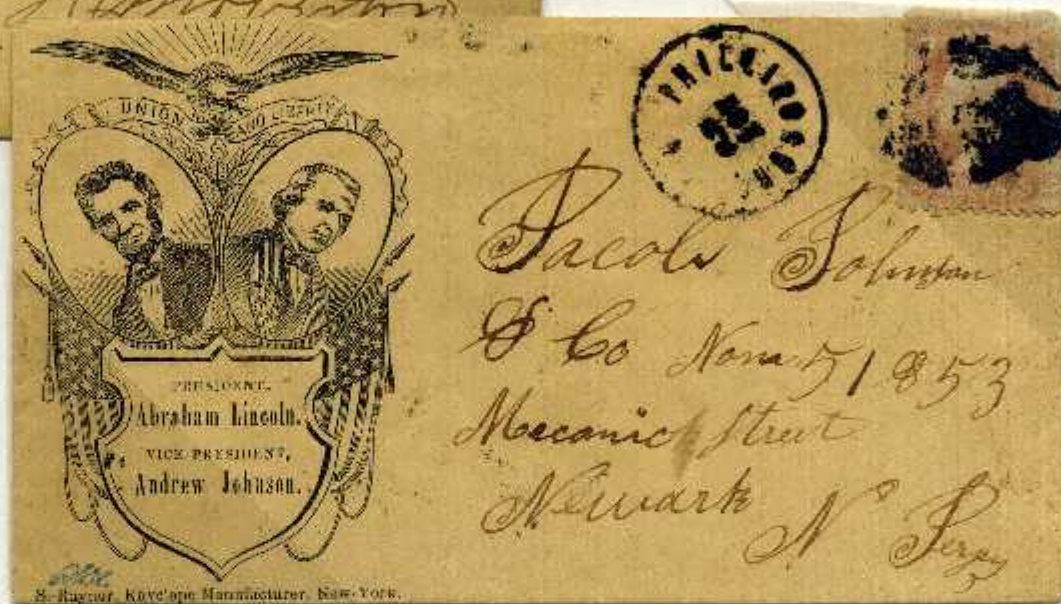 UNION AND LIBERTY
PRESIDENT,
Abraham Lincoln.
VICE-PRESIDENT,
Andrew Johnson.
S. Raynor, Envelope Manufacturer, New-York.
Jacob Johnson
& Co 51 & 53
Mecanic Street
Newark
N Jersy